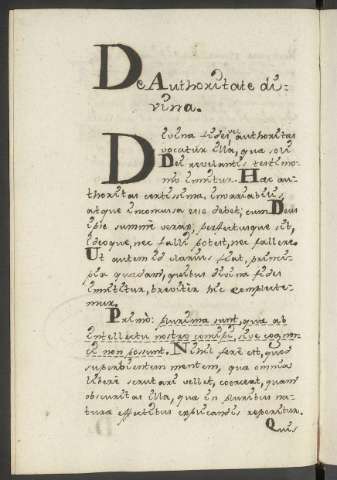 De Authoritate di-
vina.
Divina fides, seu authoritas
vocatur illa, quæ soli
Dei revelantis testimo-
nio innititur. Hæc au-
thoritas certissima, invariabilis,
atque inconcussa esse debet; cum Deus
ipse summè verax, perfectusque sit,
ideoque, nec falli potest, nec fallere.
Ut autem id clarius fiat, princi-
pia quædam, quibus divina fides
innititur, breviter hic complecte-
mur.
Primò: plurima sunt, quæ ab
intellectu nostro concipi, sive cognos-
ci non possunt. Nihil ferè est, quod
superbientem mentem, quæ omnia
liberè scrutari vellet, coerceat, quam
obscuritas illa, quæ in pluribus na-
turæ effectibus explicandis reperitur.
Quis